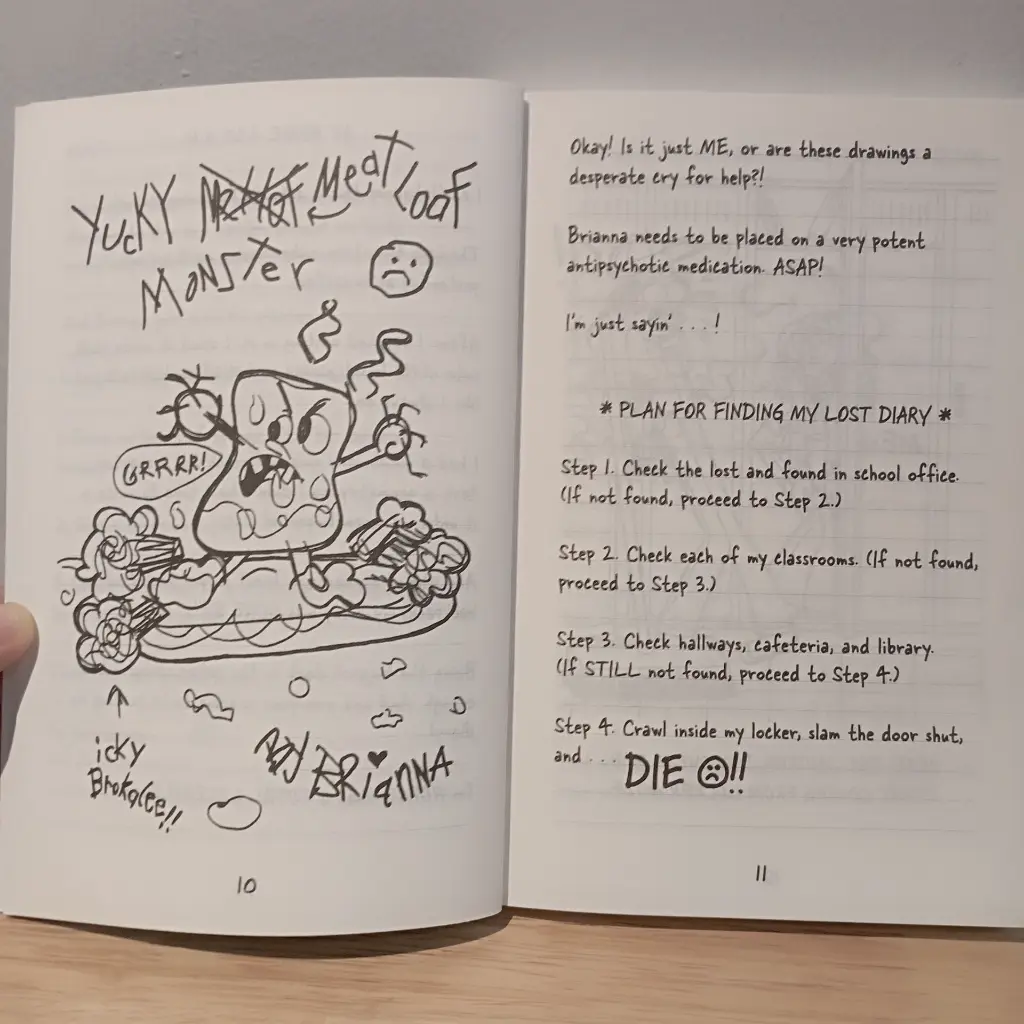 YucKY MeatLoaF
MONSTer
GRRRR!
icky
Brokolee!!
By BRiaNNA
10
Okay! Is it just ME, or are these drawings a
desperate cry for help?!
Brianna needs to be placed on a very potent
antipsychotic medication. ASAP!
I'm just sayin' . . . !
* PLAN FOR FINDING MY LOST DIARY *
Step 1. Check the lost and found in school office.
(If not found, proceed to Step 2.)
Step 2. Check each of my classrooms. (If not found,
proceed to Step 3.)
Step 3. Check hallways, cafeteria, and library.
(If STILL not found, proceed to Step 4.)
Step 4. Crawl inside my locker, slam the door shut,
and . . . DIE ☹!!
11